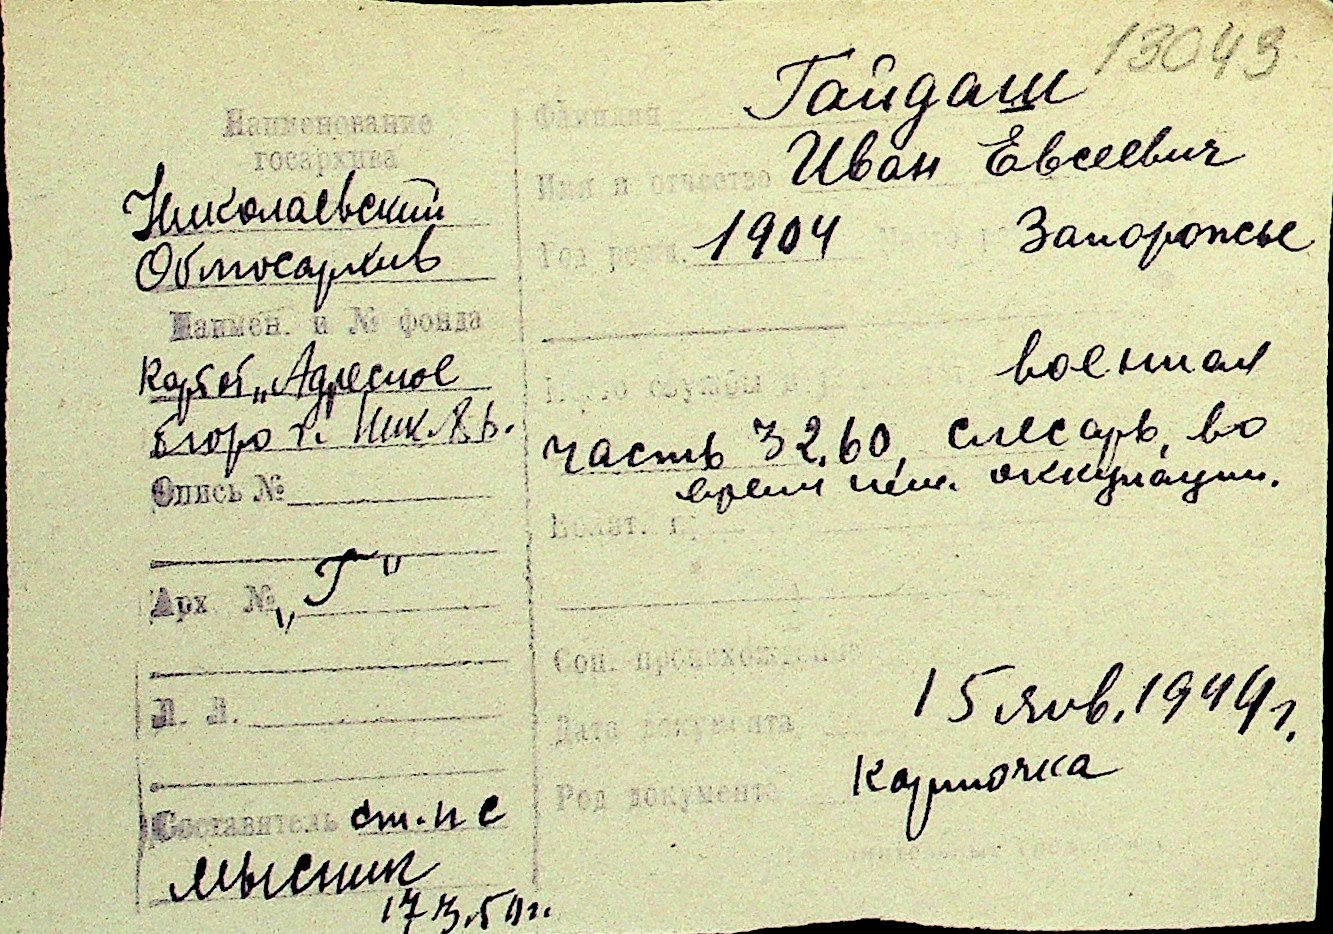 13043
Наименование
госархива
Николаевский
Облгосархив
Наимен. и № фонда
Картот. „Адресное
бюро г. Ник.
Опись №
Арх. № „Г"
Л. Л.
Составитель ст. н с
Мысник
17 3.50 г.
Фамилия Гайдаш
Имя и отчество Иван Евсеевич
Год рожд. 1904 Запорожье
Место службы военная
часть 32.60, слесарь, во
время нем. оккупации.
Соц. происхождение
Дата документа 15 янв. 1944 г.
Род документа карточка